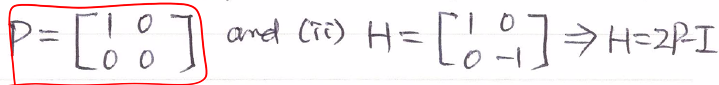 P = [1 0; 0 0] and (ii) H = [1 0; 0 -1] ⇒ H=2P-I